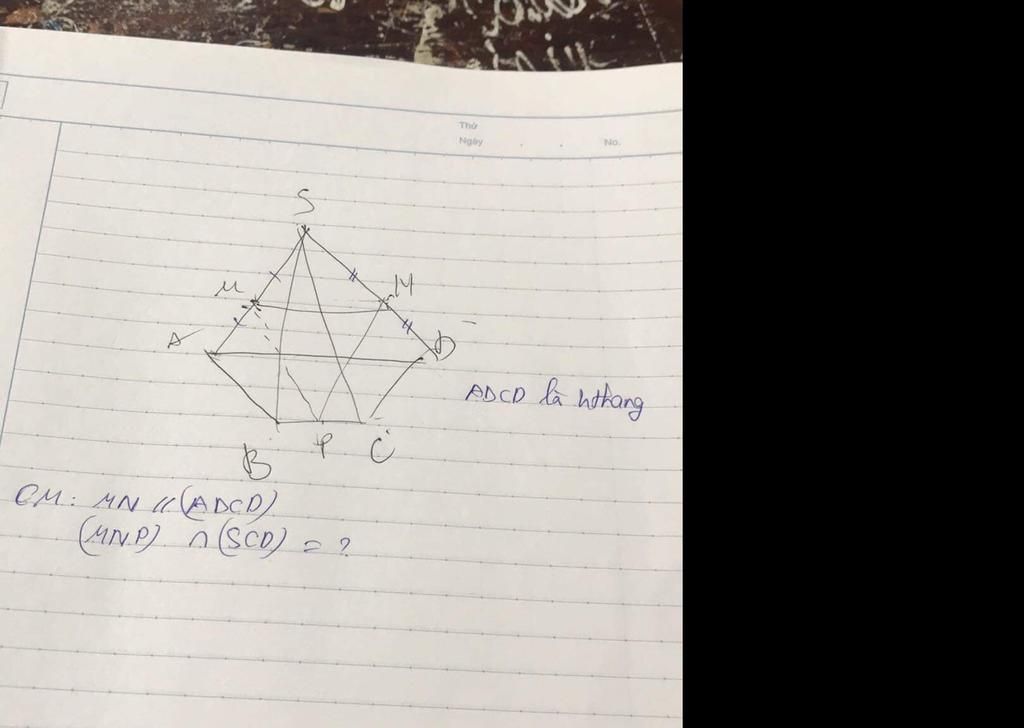 Thứ
Ngày
No.
S
M
N
A
D
ABCD là hthang
B
P
C
CM: MN // (ABCD)
(MNP) ∩ (SCD) = ?